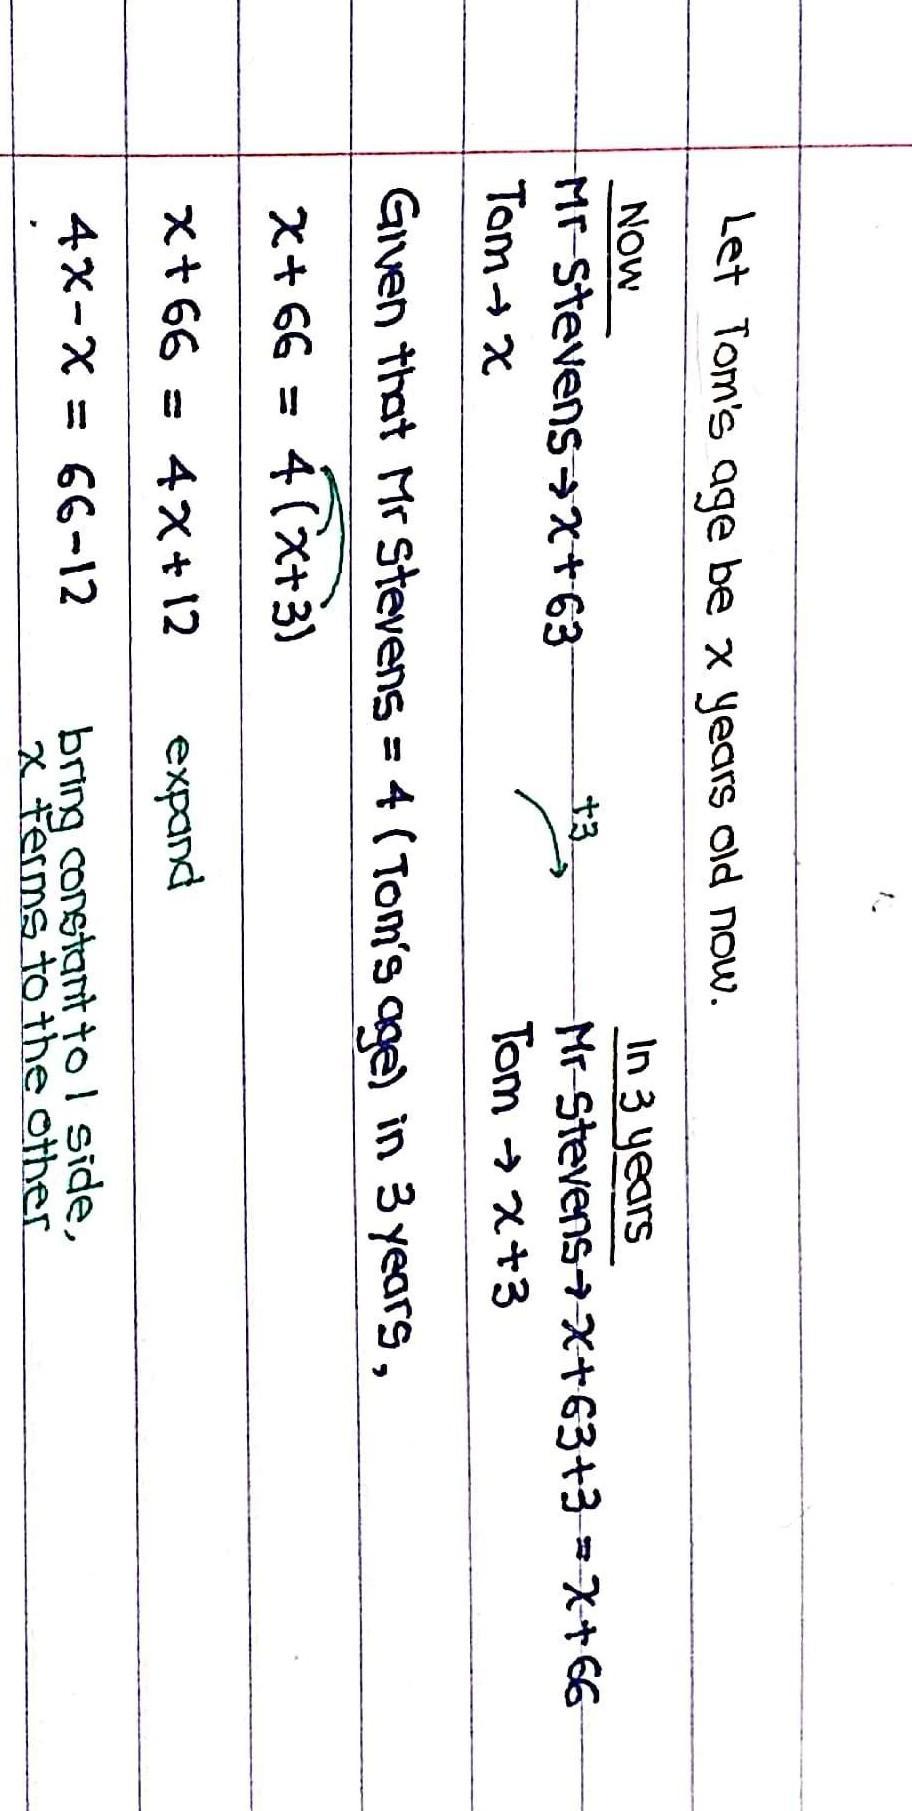 Let Tom's age be x years old now.
Now In 3 years
Mr Stevens → x + 63 +3 Mr Stevens → x + 63 + 3 = x + 66
Tom → x Tom → x + 3
Given that Mr Stevens = 4 (Tom's age) in 3 years,
x + 66 = 4 (x+3)
x + 66 = 4x + 12 expand
4x - x = 66 - 12 bring constant to 1 side,
x terms to the other